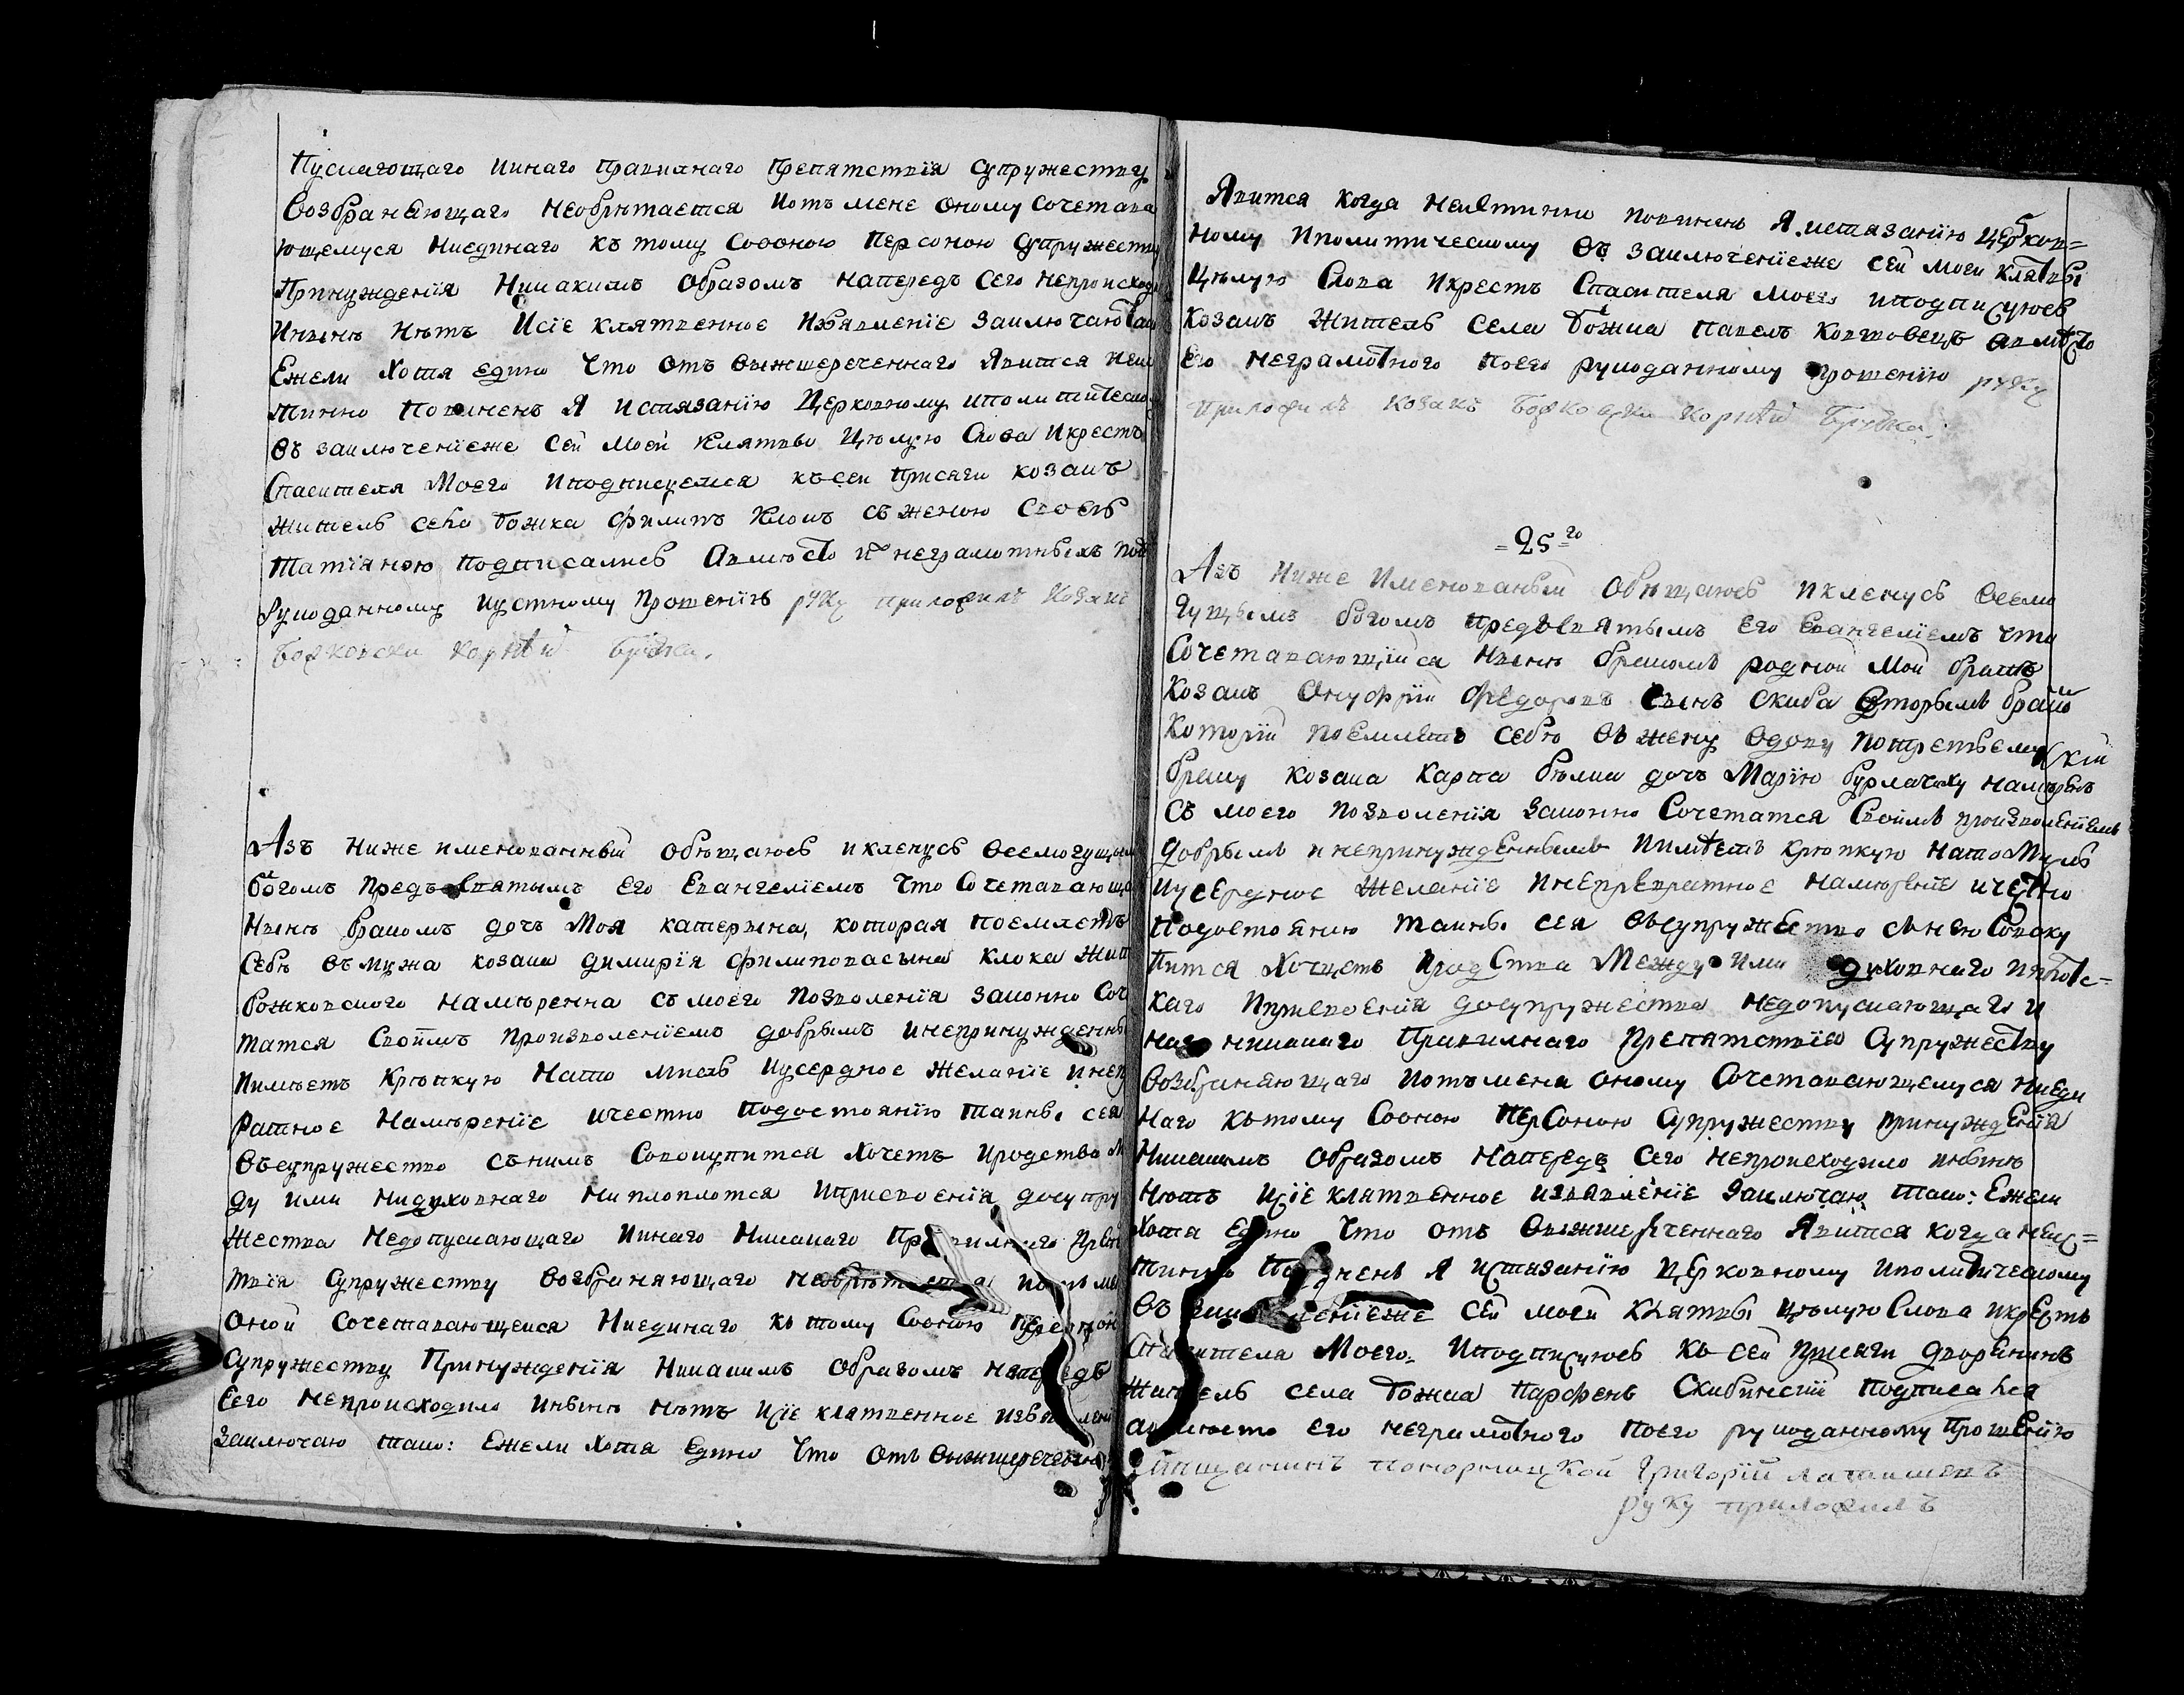 Пускающаго ииннаго правилнаго препятствїя супружеству
возбраняющаго необрѣтается иотъ мене оному сочетава
ющемуся ниединаго къ тому собоною персоною супружеству
принужденїя никакимъ образомъ напередъ сего непроисход
инынѣ нѣтъ Исїе клятвенное изявленїе заключаю тако
Ежели хотя едино что отъ вышшереченнаго явится неис
тинно повиненъ я истязанїю церковному иполитическо
въ заключенїеже сей моей клятвы цѣлую слова икрестъ
спасителя моего иподписуемся къ сей присяги козакъ
житель села божка филипъ Клокъ съ женою своею
татїяною подписались авмѣсто ихъ неграмотныхъ по
рукоданному иустному прошенїю руку приложилъ козакъ
божковски корнѣй
Азъ ниже именованный обѣщаюсь иклянусь всемогущым
богомъ предъ святымъ его Евангелїемъ что сочетавающа
нынѣ бракомъ дочъ моя катерына, которая поемлетъ
себѣ въ мужа козака димитрїя филиповасына клока жит
божковского намѣренна съ моего позволенїя законно соч
татся своимъ произволенїемъ добрымъ инепринужденны
иимѣетъ крѣпкую на то мысль иусердное желанїе инеп
ратное намѣренїе ичестно подостоянїю таины сея
въ супружество съ нимъ совокупится хочетъ иродства м
ду ими нидуховнаго ни плоплотся иприсвоенїя досупру
жества недопускающаго ииннаго никакаго правилнаго препят
твїя супружеству возбраняющаго необрѣтается иотъ ме
оной сочетавающейся ниединаго къ тому собоною персоною
супружеству принужденїя никакимъ образомъ напередъ
сего непроисходило инынѣ нѣтъ исїе клятвенное изявлени
заключаю тако: ежели хотя едино что отъ вышшереченна
Явится когда неистинно повиненъ я истязанїю церков=
ному иполитическому въ заключенїеже сей моей клятвы
цѣлую слова икрестъ спасителя моего иподписуюсь
козакъ житель села божка павелъ ковтовецъ авмѣсто
его неграмотного поего рукоданному прошенїю руку
приложилъ козакъ божковски корнѣй
=25=го
Азъ ниже именованный обѣщаюсь иклянусь всемо
гущымъ богомъ предъ святымъ его евангелїемъ что
сочетавающїйся нынѣ бракомъ родной мой братъ
козакъ онуфрїй федоровъ сынъ скиба вторымъ брако
которїй поемлетъ себѣ въ жену вдову потретьему
браку козака карпа бѣлика дочъ Марїю бурлачиху намѣренъ
съ моего позволенїя законно сочетатся своимъ произволенїемъ
добрымъ инепринужденнымъ иимѣетъ крѣпкую на то мысль
иусердное желанїе инепревратное намѣренїе ичестно
подостоянїю таины сея въсупружество сънею совоку
пится хощетъ иродства между ими духовнаго иплотс=
каго иприсвоенїя досупружества недопускающаго и
наго никакаго правилнаго препятствїя супружеству
возбраняющаго иотъмена оному сочетавающемуся ниеди
наго къ тому собоною персоною супружеству принужденїя
никакимъ образомъ напередъ сего непроисходило инынѣ
нѣтъ исїе клятвенное изявленїе заключаю тако: Ежели
хотя едино что отъ вышшереченнаго явится когда неис=
тинно повиненъ я истязанїю церковному иполитическому
въ заключенїеже сей моей клятвы цѣлую слова икрестъ
спасителя моего. иподписуюсь къ сей присяги дворенинъ
житель села божка парфенъ скибинскїй подписался
авмѣсто его неграмотного поего рукоданному прошенїю
Григорїй
руку приложилъ